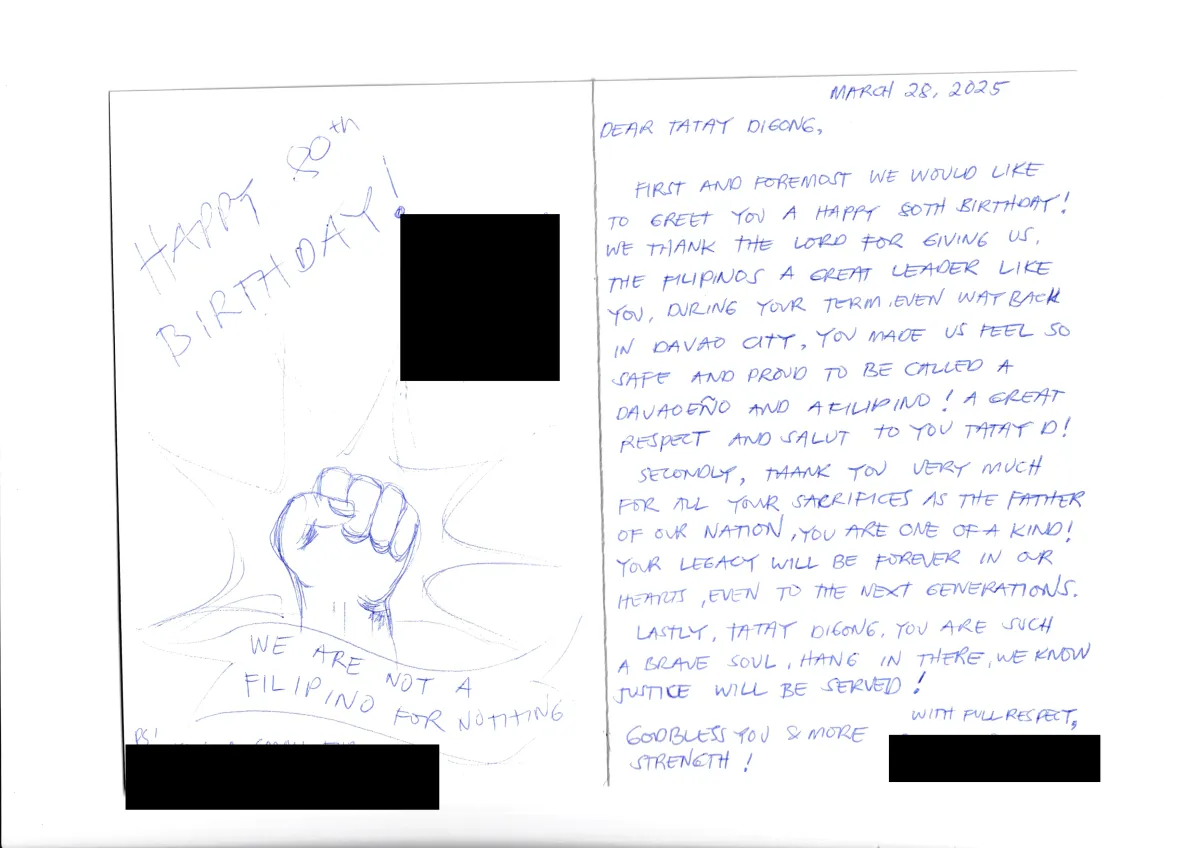 HAPPY 80th
BIRTHDAY!
WE ARE NOT A
FILIPINO FOR NOTHING
PS!
MARCH 28, 2025
DEAR TATAY DIGONG,
FIRST AND FOREMOST WE WOULD LIKE
TO GREET YOU A HAPPY 80TH BIRTHDAY!
WE THANK THE LORD FOR GIVING US,
THE FILIPINOS A GREAT LEADER LIKE
YOU, DURING YOUR TERM, EVEN WAY BACK
IN DAVAO CITY, YOU MADE US FEEL SO
SAFE AND PROUD TO BE CALLED A
DAVAOEÑO AND A FILIPINO! A GREAT
RESPECT AND SALUT TO YOU TATAY D!
SECONDLY, THANK YOU VERY MUCH
FOR ALL YOUR SACRIFICES AS THE FATHER
OF OUR NATION, YOU ARE ONE OF A KIND!
YOUR LEGACY WILL BE FOREVER IN OUR
HEARTS, EVEN TO THE NEXT GENERATIONS.
LASTLY, TATAY DIGONG, YOU ARE SUCH
A BRAVE SOUL, HANG IN THERE, WE KNOW
JUSTICE WILL BE SERVED!
WITH FULL RESPECT,
GODBLESS YOU & MORE
STRENGTH!